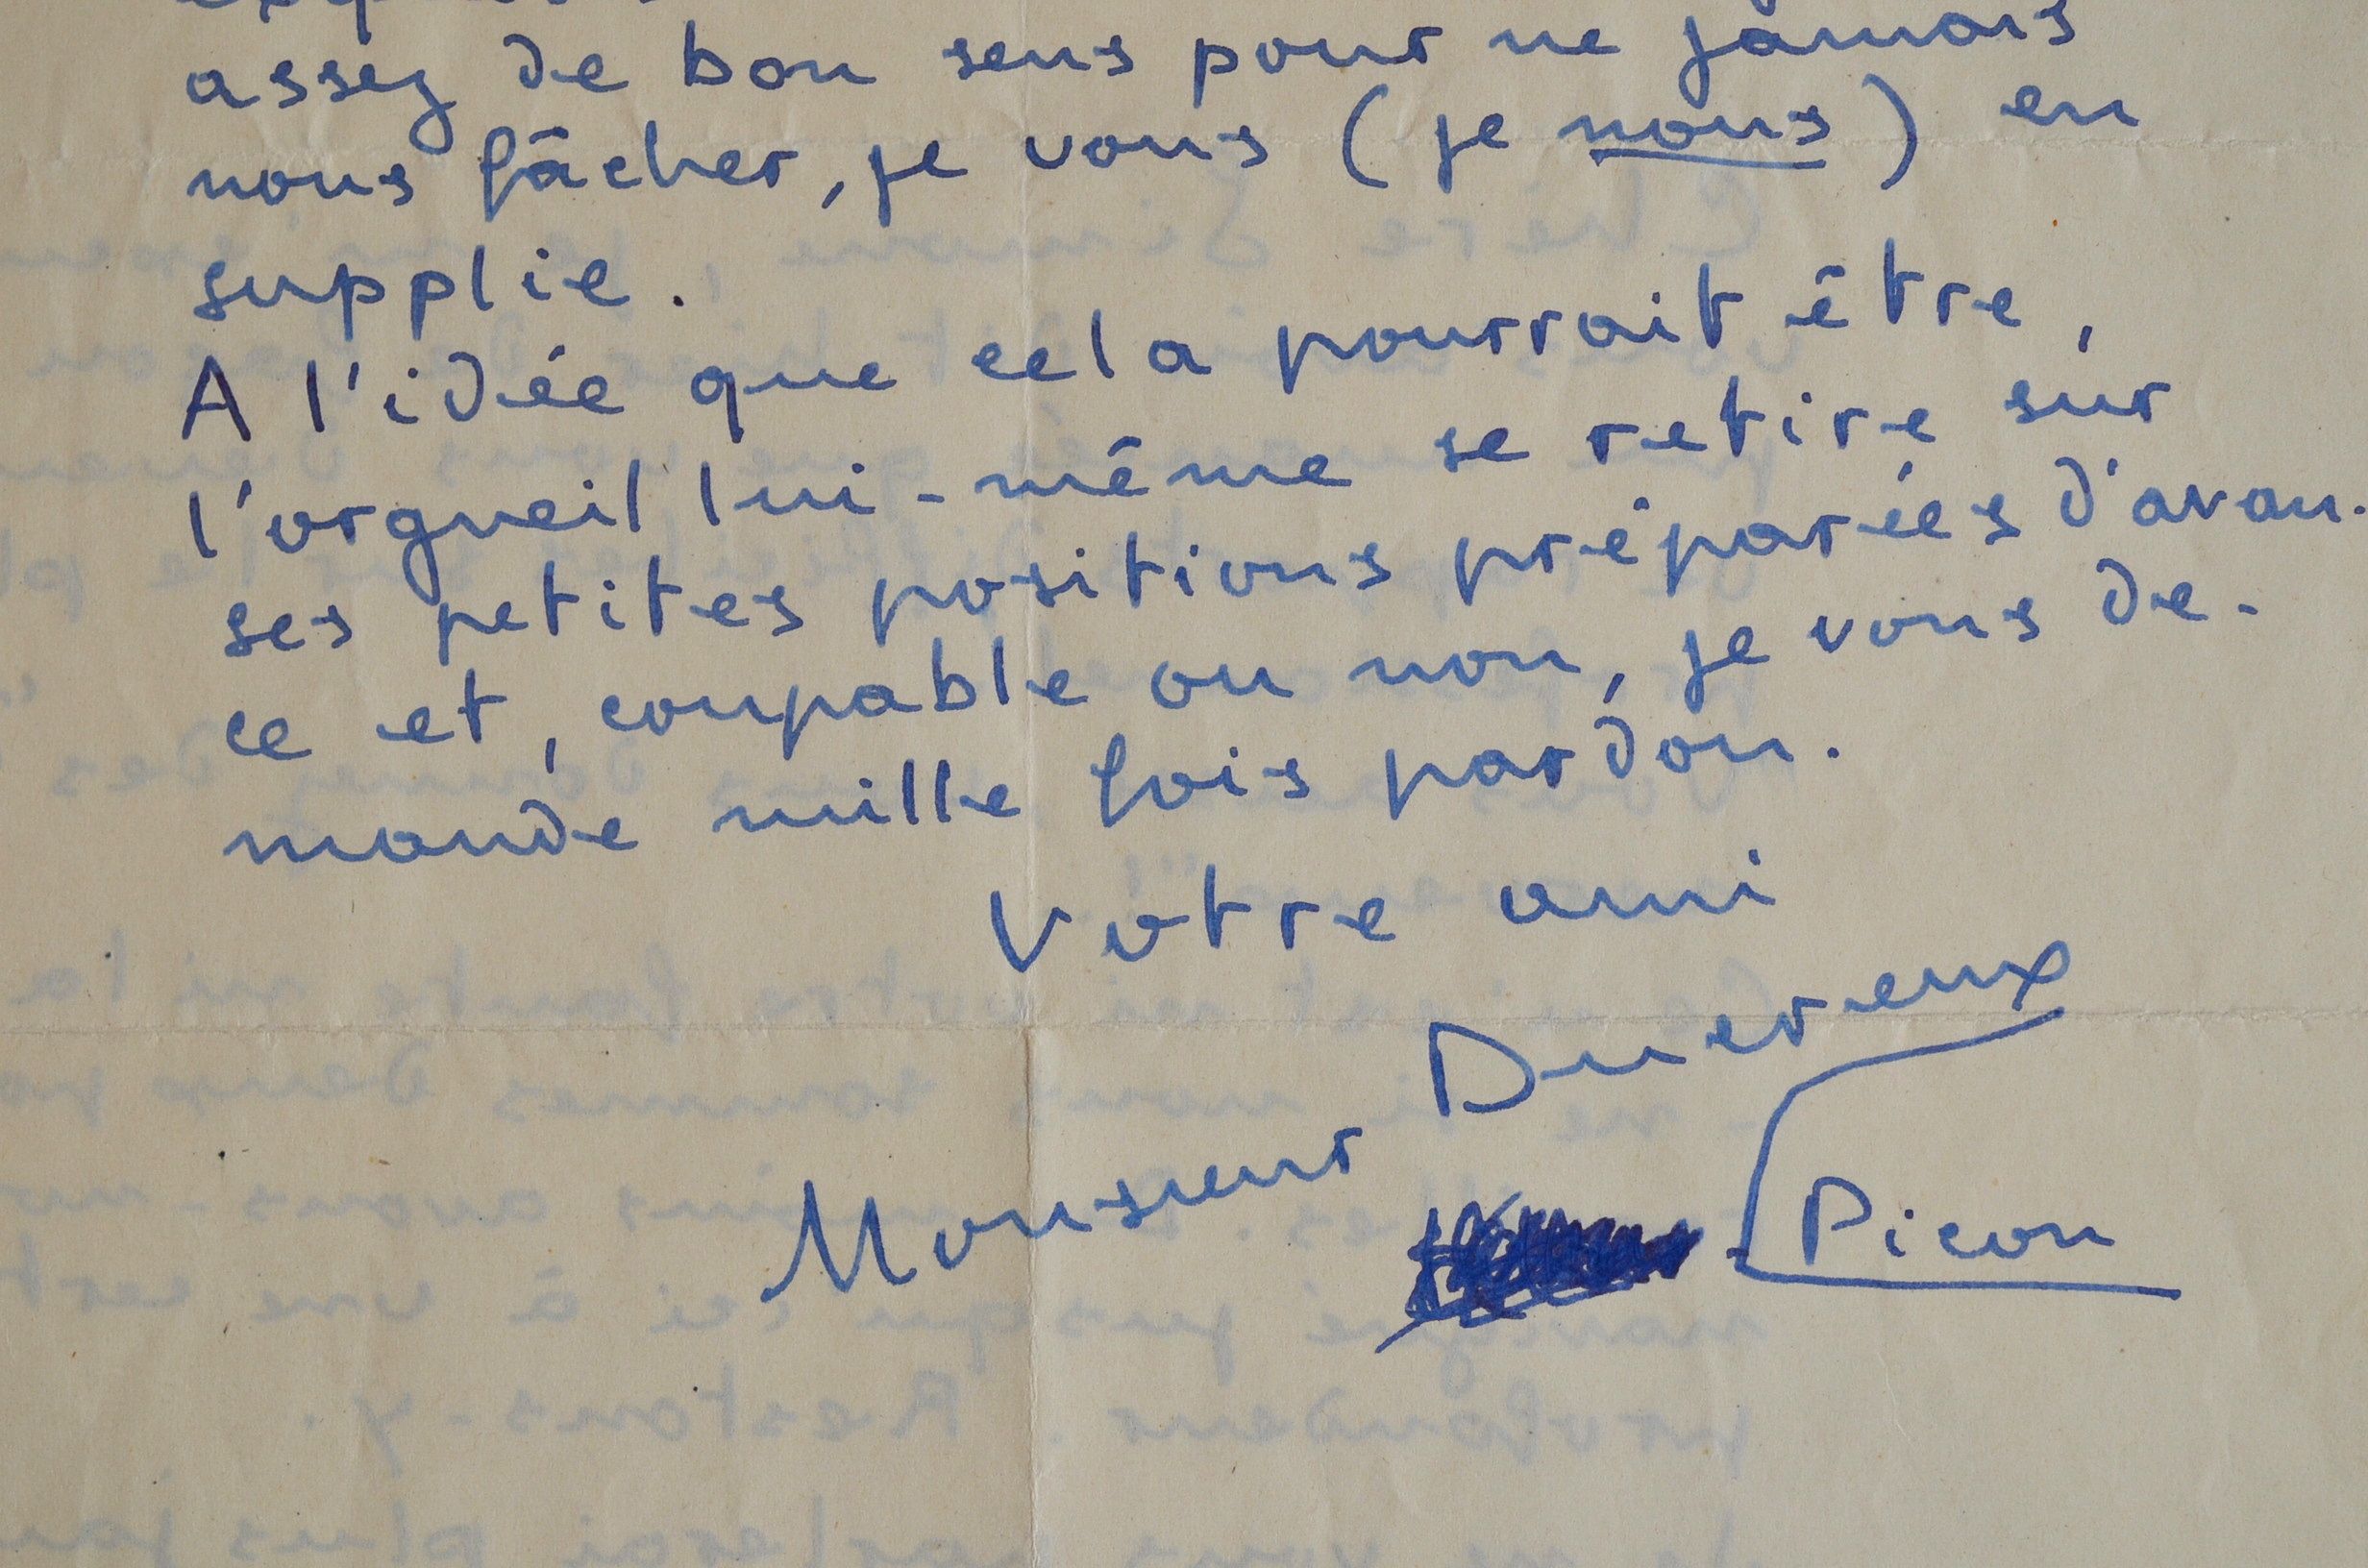 assez de bon sens pour ne jamais
nous fâcher, je vous (je nous) en
supplie.
A l'idée que cela pourrait être,
l'orgueil lui-même se retire sur
ses petites positions préparées d'avan-
ce et, coupable ou non, je vous de-
mande mille fois pardon.
Votre ami
Ducreux
Monsieur
Picon